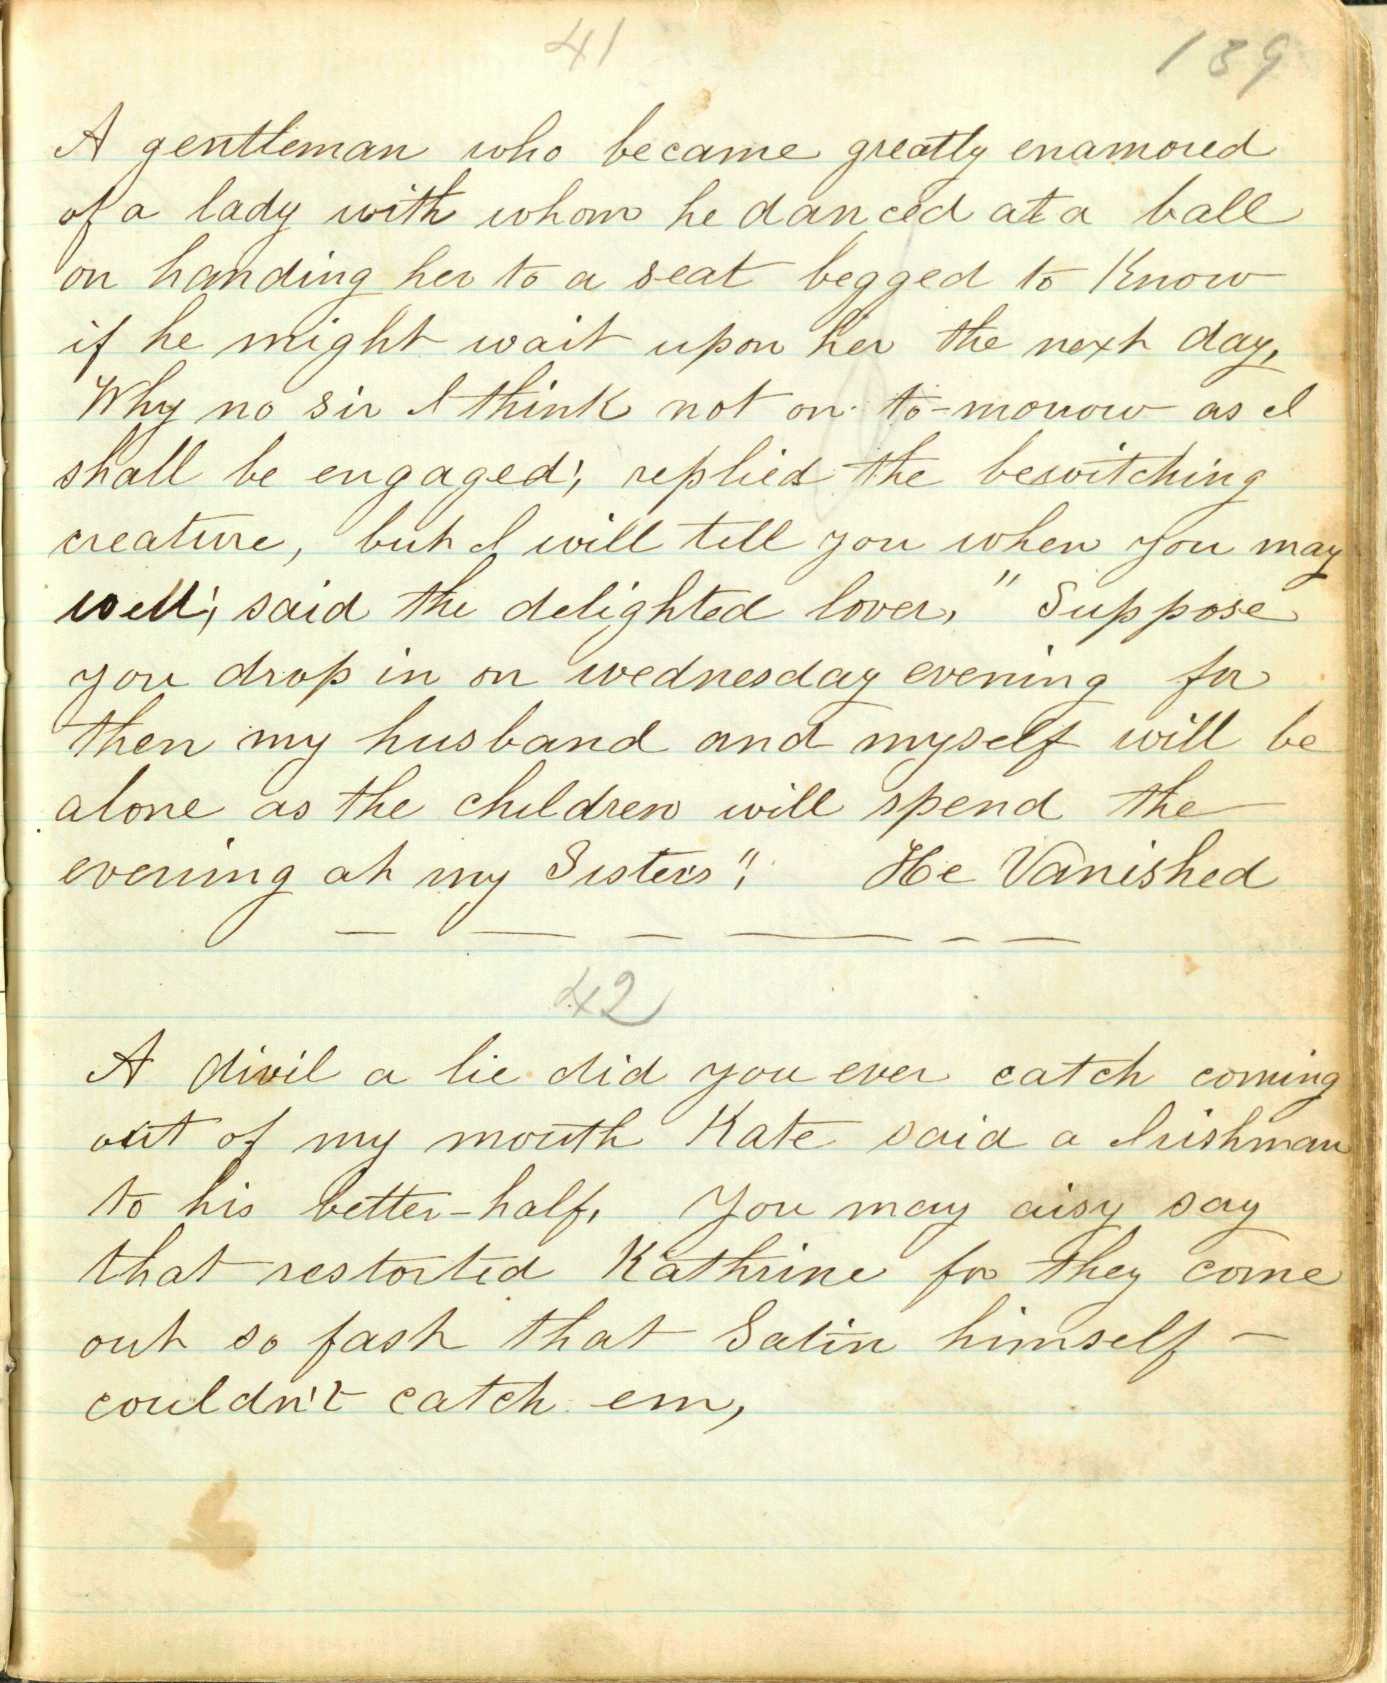 41
139
A gentleman who became greatly enamored
of a lady with whom he danced at a ball
on handing her to a seat begged to Know
if he might wait upon her the next day,
Why no sir I think not on to-morrow as I
shall be engaged; replied the bewitching
creature, but I will tell you when you may
well; said the delighted lover, " Suppose
you drop in on wednesday evening for
then my husband and myself will be
alone as the children will spend the
evening at my Sisters"; He Vanished
42
A divil a lie did you ever catch coming
out of my mouth Kate said a Irishman
to his better-half, You may aisy say
that restorted Kathrine for they come
out so fast that Satin himself -
couldn't catch em,